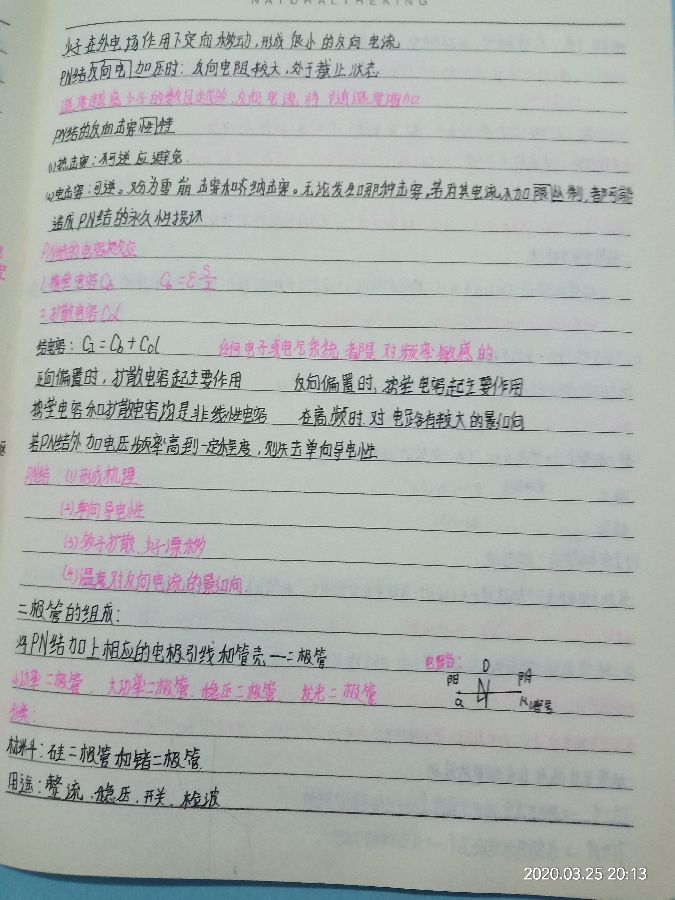 NATURALTHEKING
少子在外电场作用下定向漂动,形成很小的反向电流
PN结反向电加压时:反向电阻较大,处于截止状态
温度越高少子的数目越多,反向电流将随温度增加
PN结的反向击穿性特
(1)热击穿:不可逆应避免
(2)电击穿:可逆。又分为雪崩击穿和齐纳击穿。无论发生哪种击穿,若对其电流不加限以制,都可能
造成PN结的永久性损坏
PN结的电容效应
1.势垒电容Cb Cb=ε S/
2.扩散电容Cd
结电容:CJ=Cb+Cd 任何电子或电气系统都是对频率敏感的
正向偏置时,扩散电容起主要作用 反向偏置时,势垒电容起主要作用
势垒电容和扩散电容均是非线性电容 在高频时对电路有较大的影响
若PN结外加电压频率高到一定程度,则失去单向导电性
PN结 (1)形成机理
(2)单向导电性
(3)多子扩散 少子漂移
(4)温度对反向电流的影响
二极管的组成:
将PN结加上相应的电极引线和管壳一二极管
小功率二极管、大功率二极管、稳压二极管、发光二极管
D
阳 阴
a k
分类:
材料:硅二极管和锗二极管
用途:整流、稳压、开关、检波
2020.03.25 20:13